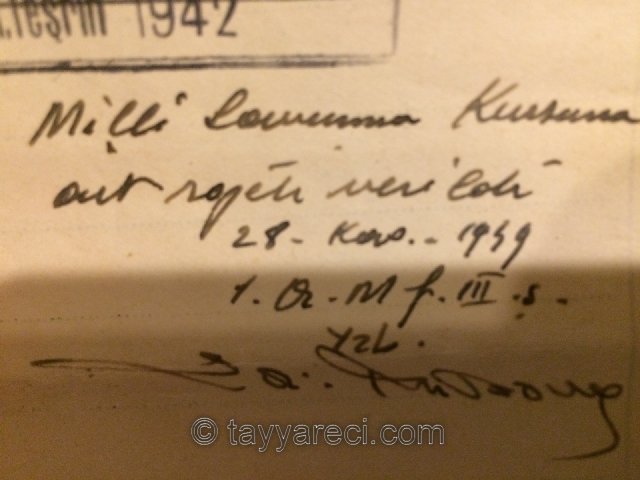 .Teşrin 1942
Milli Savunma Kursuna
ait rozeti verildi
28 - Kas. - 1949
1. Or. M f. III. ş.
Yzb.
© tayyareci.com